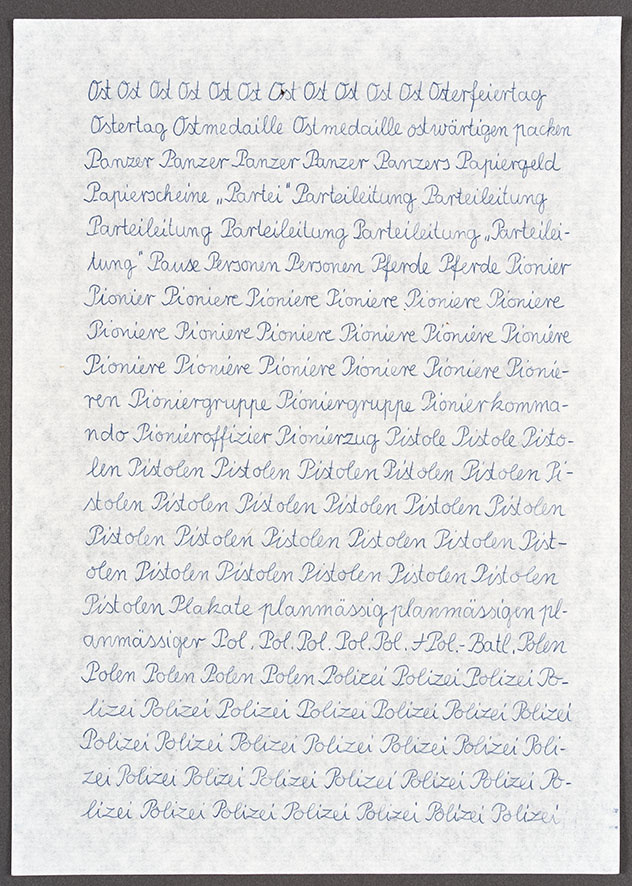 Ost Ost Ost Ost Ost Ost Ost Ost Ost Ost Ost Osterfeiertag
Ostertag Ostmedaille Ostmedaille ostwärtigen packen
Panzer Panzer Panzer Panzer Panzers Papiergeld
Papierscheine „Partei" Parteileitung Parteileitung
Parteileitung Parteileitung Parteileitung „Parteilei-
tung" Pause Personen Personen Pferde Pferde Pionier
Pionier Pioniere Pioniere Pioniere Pioniere Pioniere
Pioniere Pioniere Pioniere Pioniere Pioniere Pioniere
Pioniere Pioniere Pioniere Pioniere Pioniere Pionie-
ren Pioniergruppe Pioniergruppe Pionierkomma-
ndo Pionieroffizier Pionierzug Pistole Pistole Pisto-
len Pistolen Pistolen Pistolen Pistolen Pistolen Pi-
stolen Pistolen Pistolen Pistolen Pistolen Pistolen
Pistolen Pistolen Pistolen Pistolen Pistolen Pist-
olen Pistolen Pistolen Pistolen Pistolen Pistolen
Pistolen Plakate planmässig planmässigen pl-
anmässiger Pol. Pol. Pol. Pol. Pol. +Pol.-Batl. Polen
Polen Polen Polen Polen Polizei Polizei Polizei Po-
lizei Polizei Polizei Polizei Polizei Polizei Polizei
Polizei Polizei Polizei Polizei Polizei Polizei Poli-
zei Polizei Polizei Polizei Polizei Polizei Polizei Po-
lizei Polizei Polizei Polizei Polizei Polizei Polizei